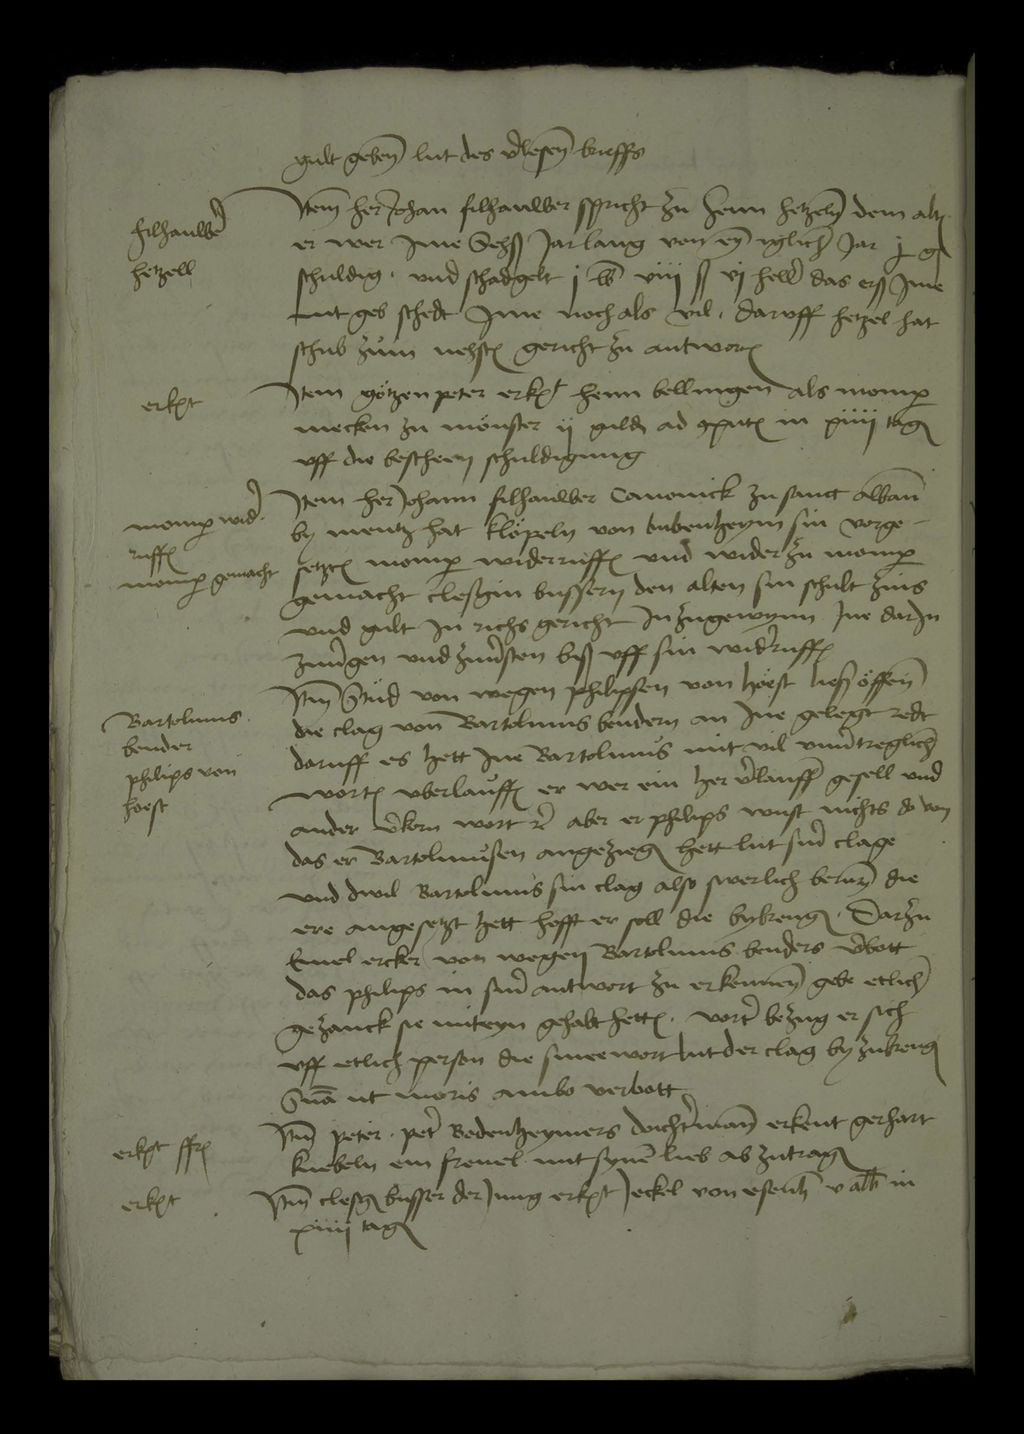 gult geben lut des v̾lesen brieffs
filhauwer
hetzell
Item her Johan filhauwer spricht zu henn hetzeln dem alten
er wer Ime Sehß Jar lang von eyn iglich Jar j g
schuldig und schadgelt j lb viij ß vj heller das erß Ime
nit geb schedt Ime noch als vil daruff hetzel hat
schub zum nehsten gericht zu antworten
erkent
Item götzen peter erkent henn bellingen als momper
mecken zu mönster ij gulden ad computum in xiiij tagen
uff die bescheen schuldigung
momper wider
ruffen
momper gemacht
Item her Johann filhauwer Canonick zu sanct alban
by mentz hat Klöpeln von bubenheym sin vorge
setzten momper widerruffen und wider zu momper
gemacht cleßgin bussern den alten sin schult zins
und gult In richs gericht In zugewynn Ine dar In
zuverigen und zuversten biß uff sin widerruffen
Bartolmus
bender
philips von
hoest
Item Stud von wegen philipsen von hoest ließ öffenn
die clag von Bartolmus bendern an Ine gelegt redt
daruff es hett Ine Bartolmus mit vil unvertreglich
worten uberlauffen er wer ein her verlauffen gesell und
ander uberkern wort etc aber er philips wust nichts do von
das er Bartolmusen angezogen hett lut siner clage
und dwil Bartolmus sin clag also swerlich berurn die
ere angesetzt hett hofft er soll die bybrengen Darzu
Emel ercker von wegen Bartolmus benders verbott
das philips in siner antwort zu erkennen gebe etlich
gezanck sie miteyn gehabt hetten vorter bezug er sich
uff etlich person die smeewort lut der clag by zubrengen
Suma ut moris ambo verbott
erkent frev
Item peter peter Bodenheymers dochterman erkent gerhart
knebeln ein frevel mit synem lieb ab zutragen
erkent
Item clesgen busser der Jung erkent Jeckel von esenh v alb in
xiiij tagen